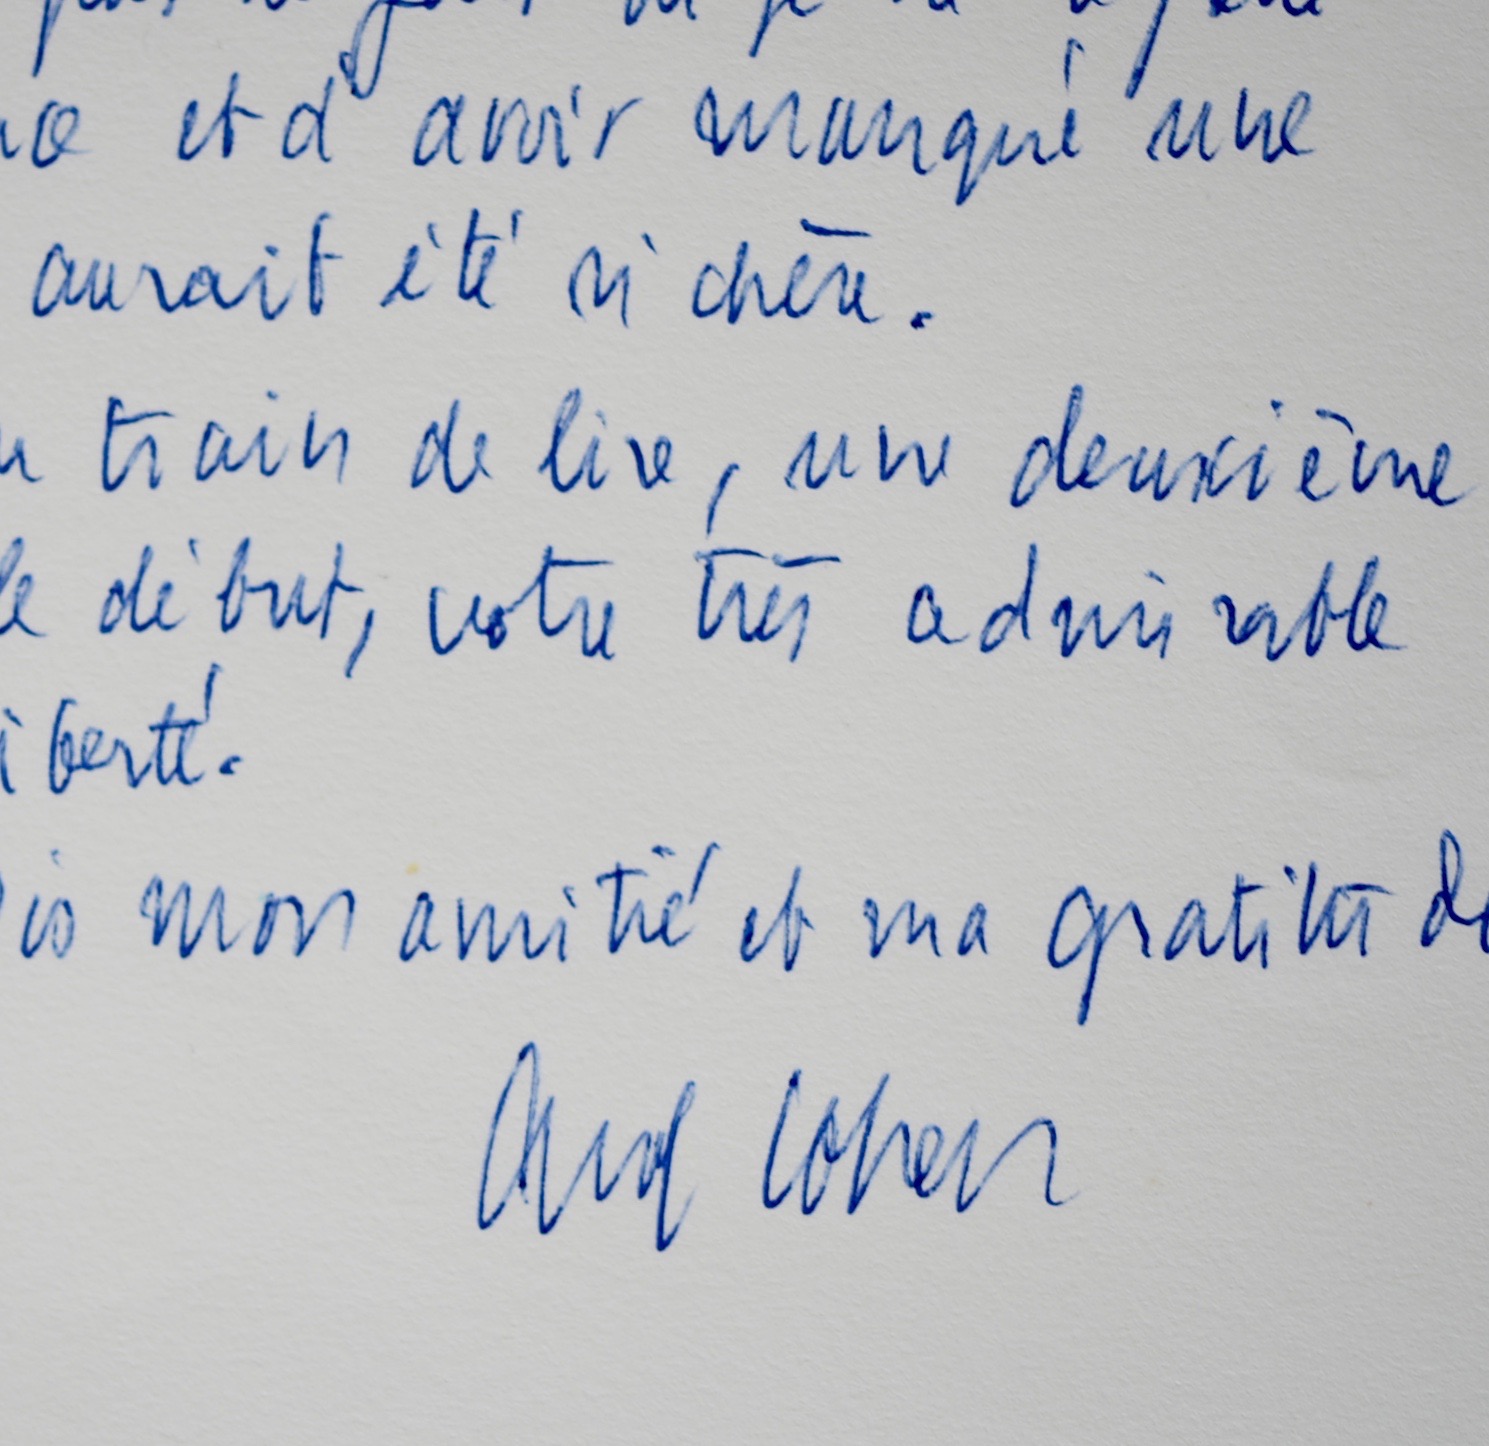 et d'avoir manqué une
aurait été si chère.
train de lire, une deuxième
le début, votre très admirable
iberté.
mon amitié et ma gratitude
Cohen